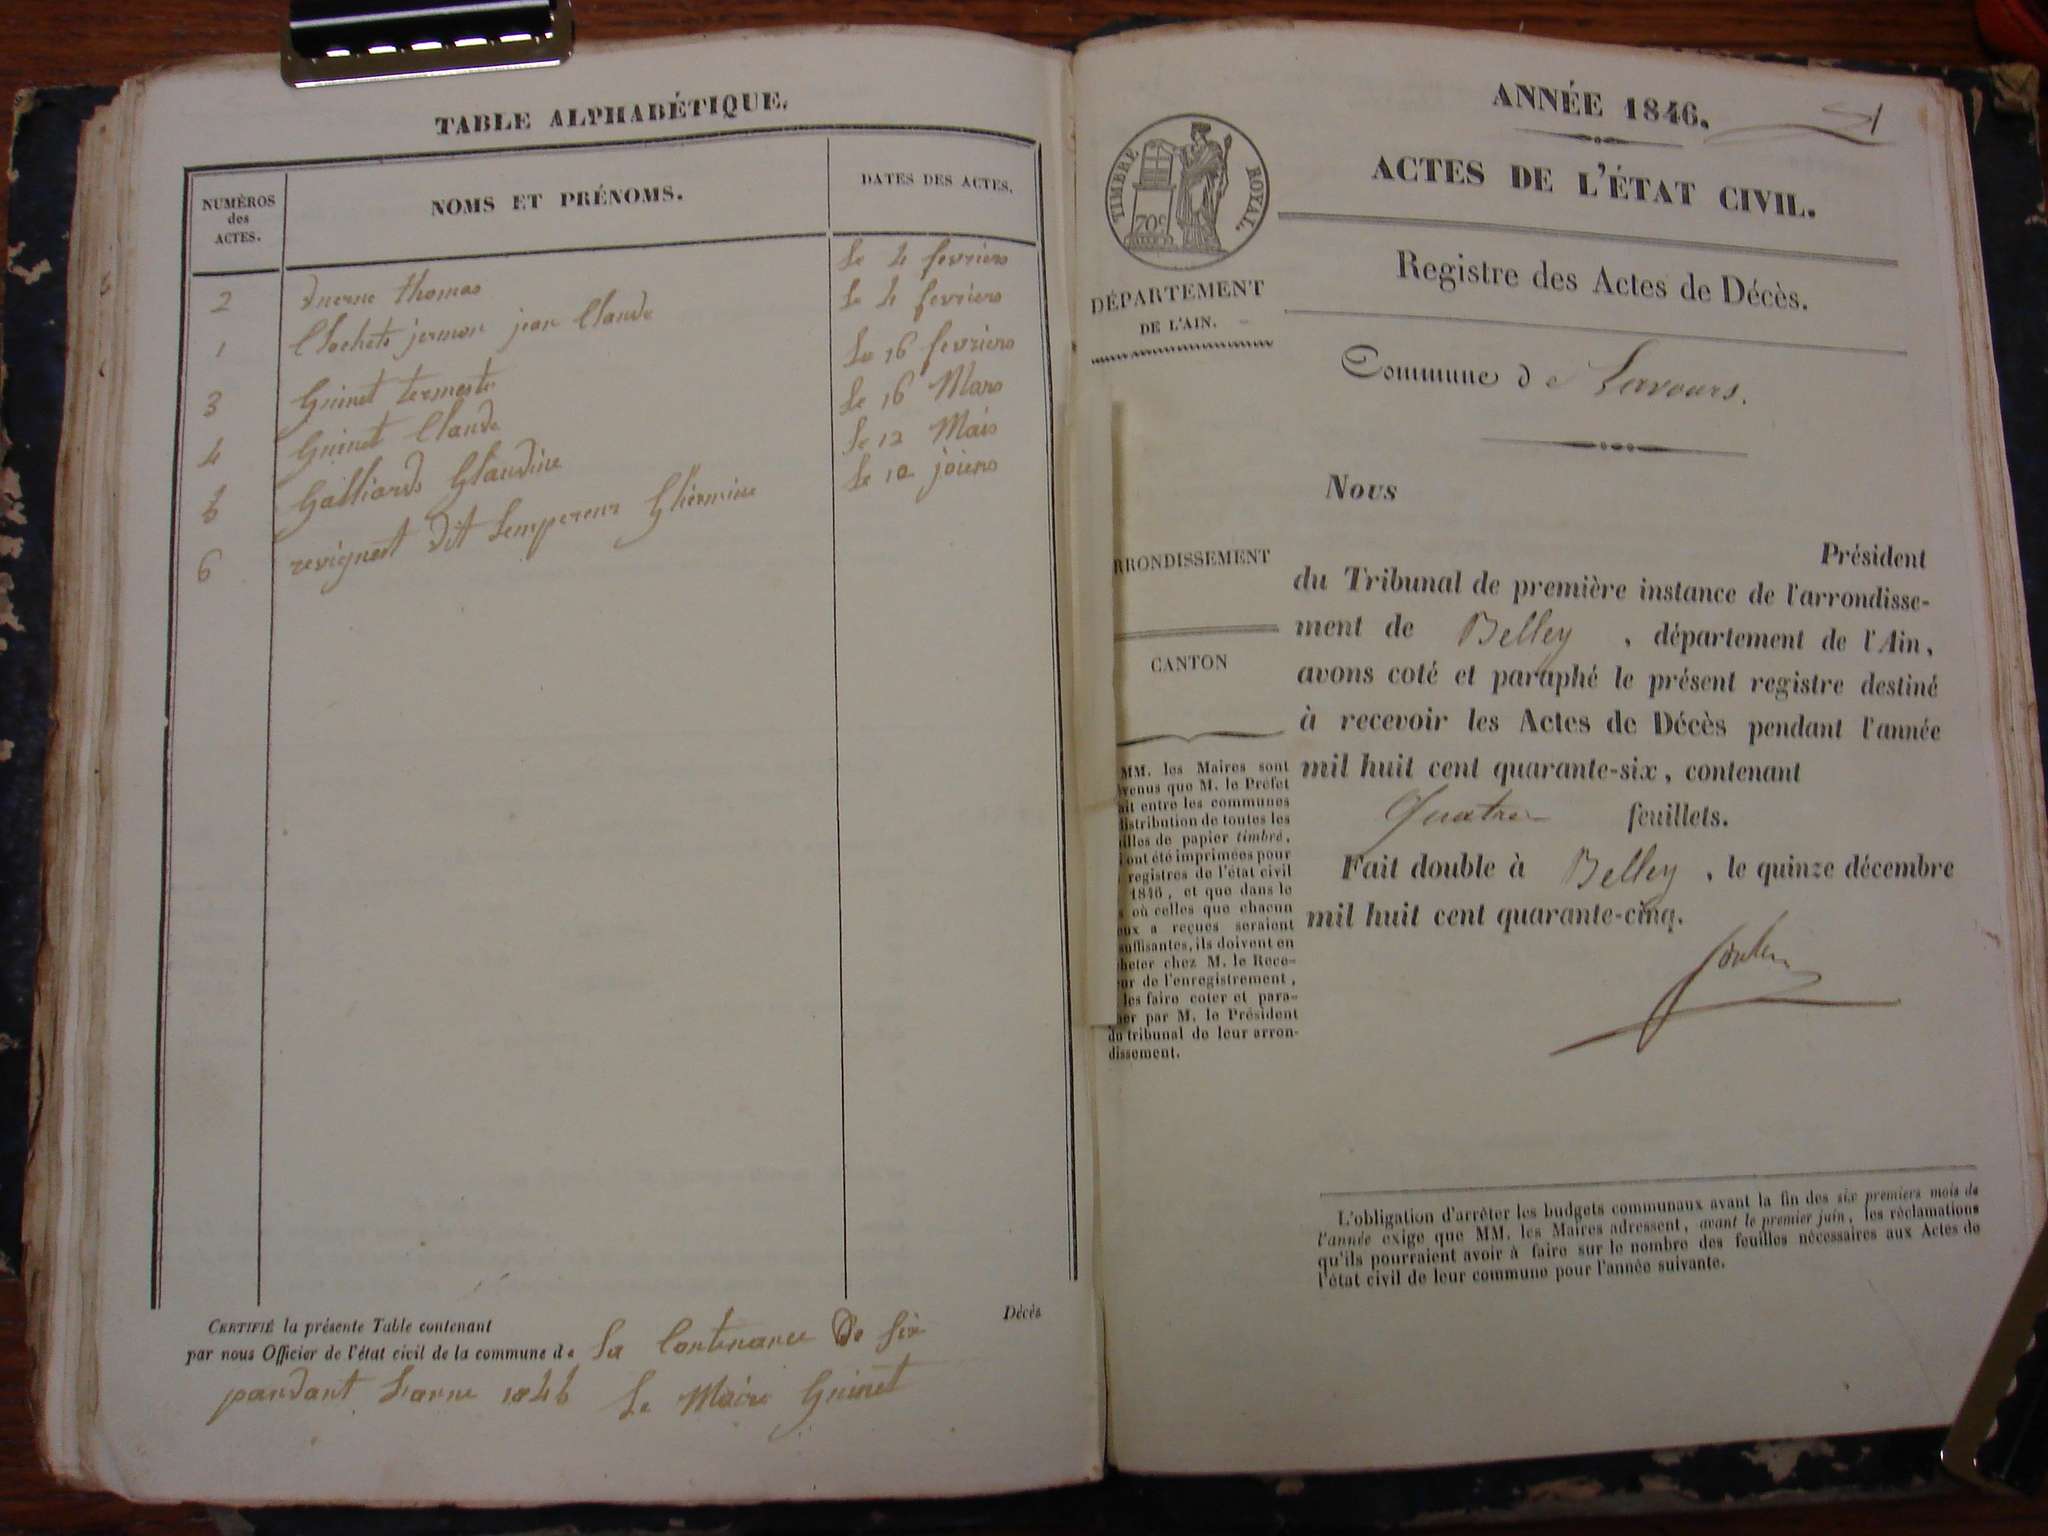 TABLE ALPHABÉTIQUE.
NUMÉROS
des
ACTES.
NOMS ET PRÉNOMS.
DATES DES ACTES.
2 thomas le 4 fevriers
1 jermon jean Claude le 4 fevriers
3 Guinet Le 16 fevriers
4 Guinet Claude le 16 Mars
5 Galliards Glaudine le 12 Mais
6 revignest dit Lempereur le 10
CERTIFIÉ la présente Table contenant Décès
par nous Officier de l'état civil de la commune de La Contenance De Six
pandant Larne 1845 Le Maire Guinet
ANNÉE 1846.
ACTES DE L'ÉTAT CIVIL.
TIMBRE ROYAL.
70c
Registre des Actes de Décès.
DÉPARTEMENT
DE L'AIN.
Commune de Lavours.
Nous
Président
du Tribunal de première instance de l'arrondisse-
ment de Belley, département de l'Ain,
avons coté et paraphé le présent registre destiné
à recevoir les Actes de Décès pendant l'année
mil huit cent quarante-six, contenant
Quatre feuillets.
Fait double à Belley, le quinze décembre
mil huit cent quarante-cinq.
RRONDISSEMENT
CANTON
MM. les Maires sont
venus que M. le Préfet
ait entre les communes
distribution de toutes les
illes de papier timbré,
i ont été imprimées pour
registres de l'état civil
1846, et que dans le
s où celles que chacun
eux a reçues seraient
suffisantes, ils doivent en
heter chez M. le Rece-
ur de l'enregistrement,
les faire coter et para-
her par M. le Président
du tribunal de leur arron-
dissement.
L'obligation d'arrêter les budgets communaux avant la fin des six premiers mois de
l'année exige que MM. les Maires adressent, avant le premier juin, les réclamations
qu'ils pourraient avoir à faire sur le nombre des feuilles nécessaires aux Actes de
l'état civil de leur commune pour l'année suivante.